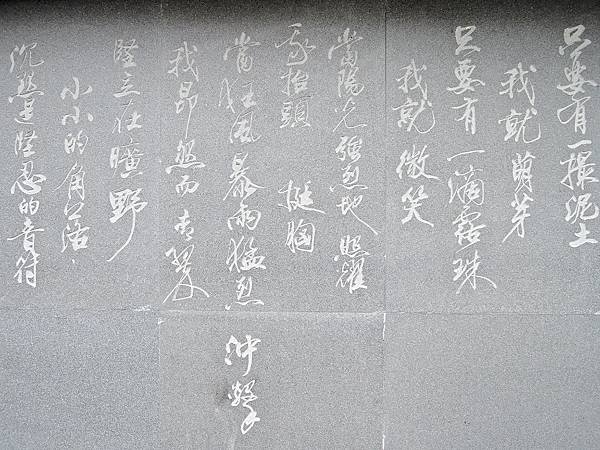 只要有一撮泥土
我就萌芽
只要有一滴露珠
我就微笑
當陽光強烈地照耀
我抬頭　挺胸
當狂風暴雨猛烈　沖擊
我昂然而青翠
堅立在曠野
小小的角落，
沉默是堅忍的音符